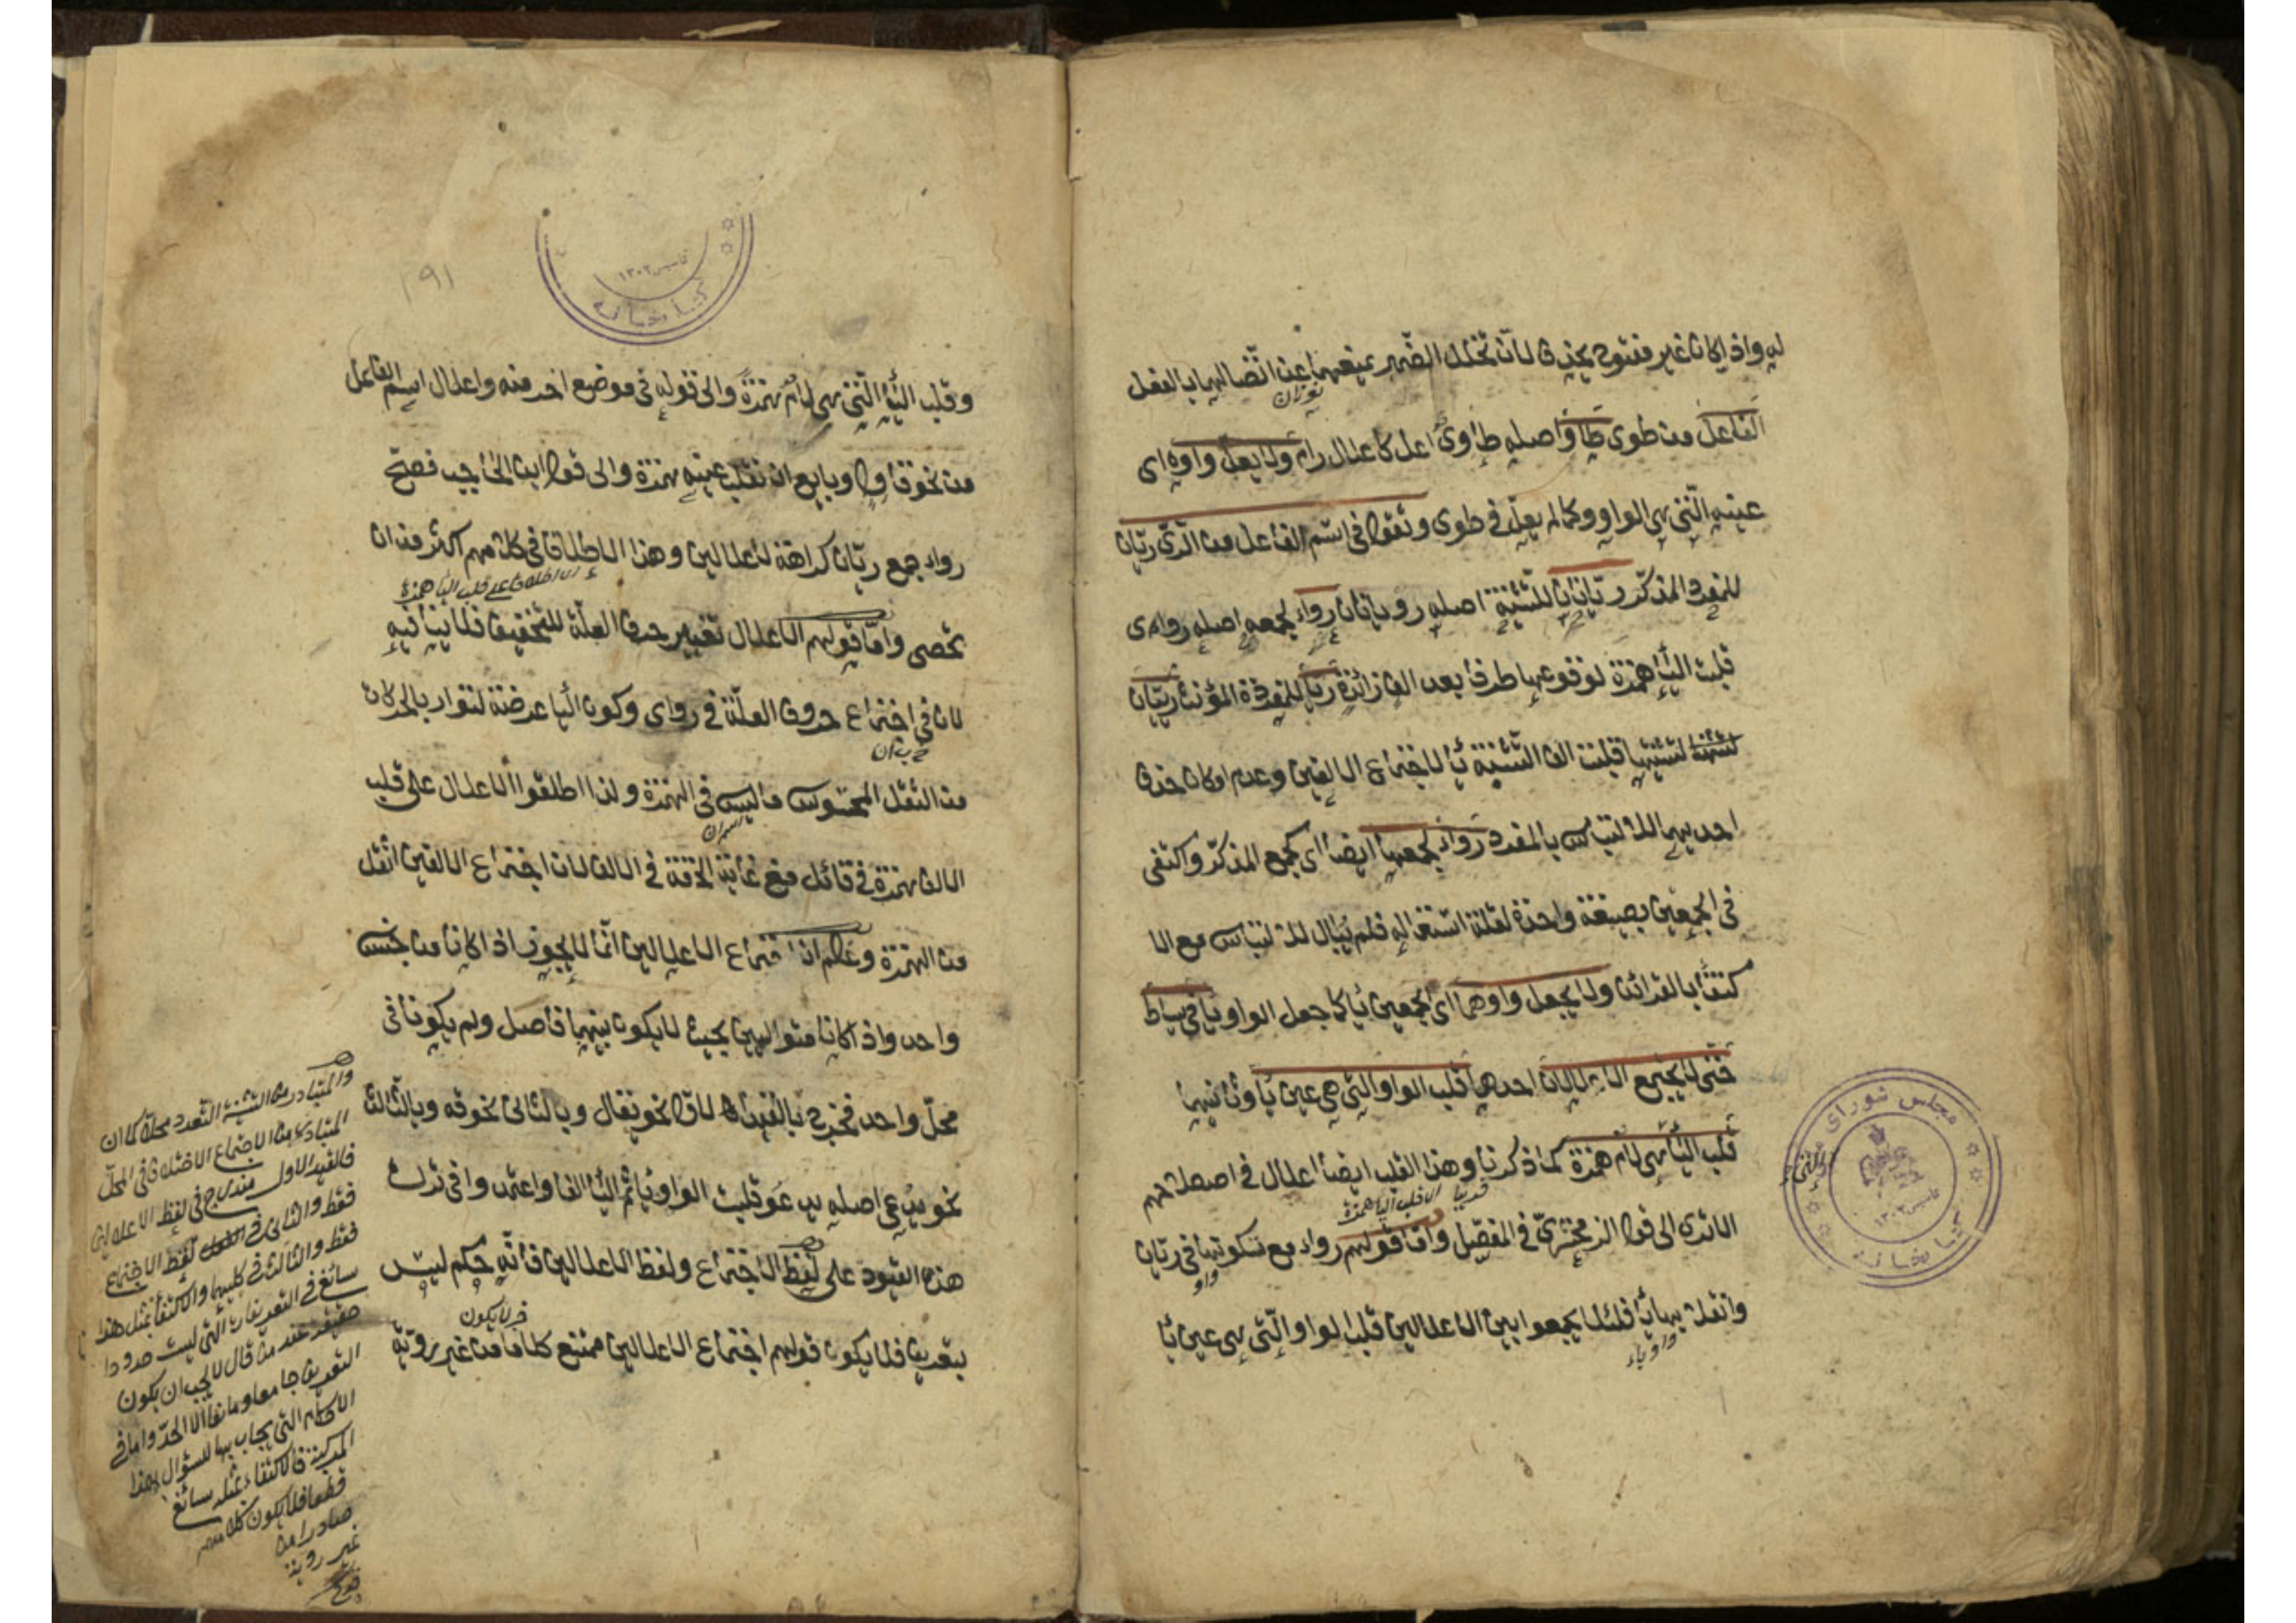 له واذا كان غير مفتوح يحذف لان تخلل الضمير يمنعهما عن اتصالهما بالفعل
الفاعل من طوى طاو اصله طاوى اعل كاعلال رام ولا يعل واوه اى
عينه التى هى الواو كما لم يعل فى طوى وتقول فى اسم الفاعل من الرى ريان
للمفرد المذكر ريانان للتثنية اصله رويانان رواء لجمعه اصله رواى
قلبت الياء همزة لوقوعها طرفا بعد الف زائدة ريا للمفردة المؤنث رييان
لتثنيتها قلبت الف التثنية ياء لاجتماع الالفين وعدم امكان حذف
احديهما للالتباس بالمفرد رواء لجمعها ايضا اى كجمع المذكر واكتفى
فى الجمعين بصيغة واحدة لقلة استعماله فلم يبال للالتباس مع الا
كتفاء بالقرائن ولا يجعل واوهما اى الجمعين ياء كما جعل الواو ياء فى سياط
حتى لا يجتمع الاعلالان احدهما قلب الواو التى هى عين ياء وثانيهما
قلب الياء هى لام همزة كما ذكرنا وهذا القلب ايضا اعلال فى اصطلاحهم
الا ترى الى قول الزمخشرى فى المفصل واما قولهم رواء مع سكونها فى ريان
وانقلابها ياء فلئلا يجمعوا بين الاعلالين قلب الواو التى هى عين ياء
واو ياء
مجلس شوراى
كتابخانه
١٣٠٢
٢٩١
كتابخانه
تاسيس ١٣٠٢
وقلب الياء التى هى لام همزة والى قوله فى موضع اخر منه واعلال اسم الفاعل
من نحو قاول وبايع ان تقلب عينه همزة والى قول ابن الحاجب فصح
رواء جمع ريان كراهة لاعلالين وهذا الاطلاق فى كلامهم اكثر من ان
تحصى واما قولهم الاعلال تغيير حرف العلة للتخفيف فلا ينافيه
لان فى اجتماع حروف العلة فى رواى وكون الياء عرضة لتوارد الحركات
من الثقل المحسوس ما ليس فى الهمزة ولذا اطلقوا الاعلال على قلب
الالف همزة فى قائل مع غاية الخفة فى الالف لان اجتماع الالفين اثقل
من الهمزة وعلم ان اجتماع الاعلالين انما لا يجوز اذا كانا من جنس
واحد واذا كانا متواليين بحيث لا يكون بينهما فاصل ولم يكونا فى
محل واحد فخرج بالقيد الاول نحو يقال وبالثانى نحو قه وبالثالث
نحو يدعى اصله يدعو قلبت الواو ياء ثم الياء الفا واعتمدوا فى ترك
هذه القيود على لفظ الاجتماع ولفظ الاعلالين فانه حكم ليس
بتعريف فلا يكون قولهم اجتماع الاعلالين ممتنع كلاما من غير روية
والمتبادر من التثنية التعدد محلا كما ان
المتبادر من الاجتماع الاختلاف فى المحل
فالقيد الاول مندرج فى لفظ الاعلالين
فقط والثانى فى لفظ الاجتماع
فقط والثالث فى كليهما والاكتفاء بمثل هذا
سائغ فى التعريفات التى ليست حدودا
حقيقة عند من قال لا يجب ان يكون
التعريف جامعا ومانعا الا الحد واما فى
الاحكام التى يجاب بها السؤال وهذا
فالاكتفاء بمثله سائغ
قطعا فلا يكون كلامهم
صادرا من
غير روية